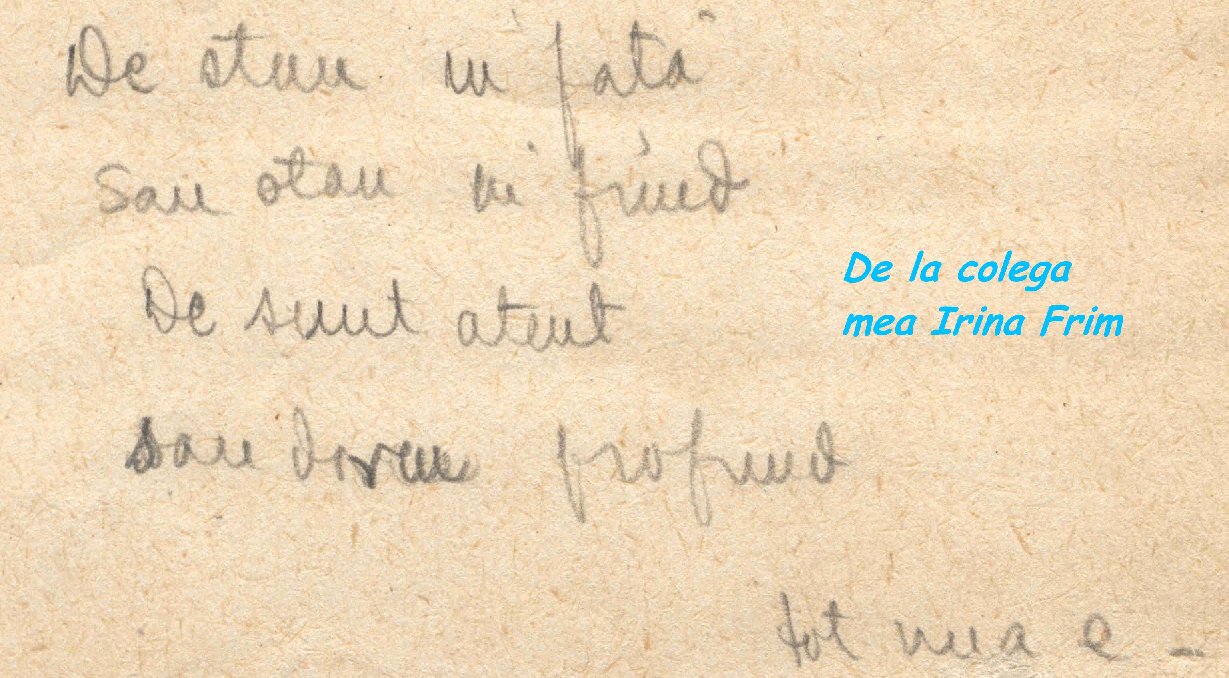 De stau în față
Sau stau în fund
De sunt atent
sau dorm profund
tot una e -
De la colega
mea Irina Frim